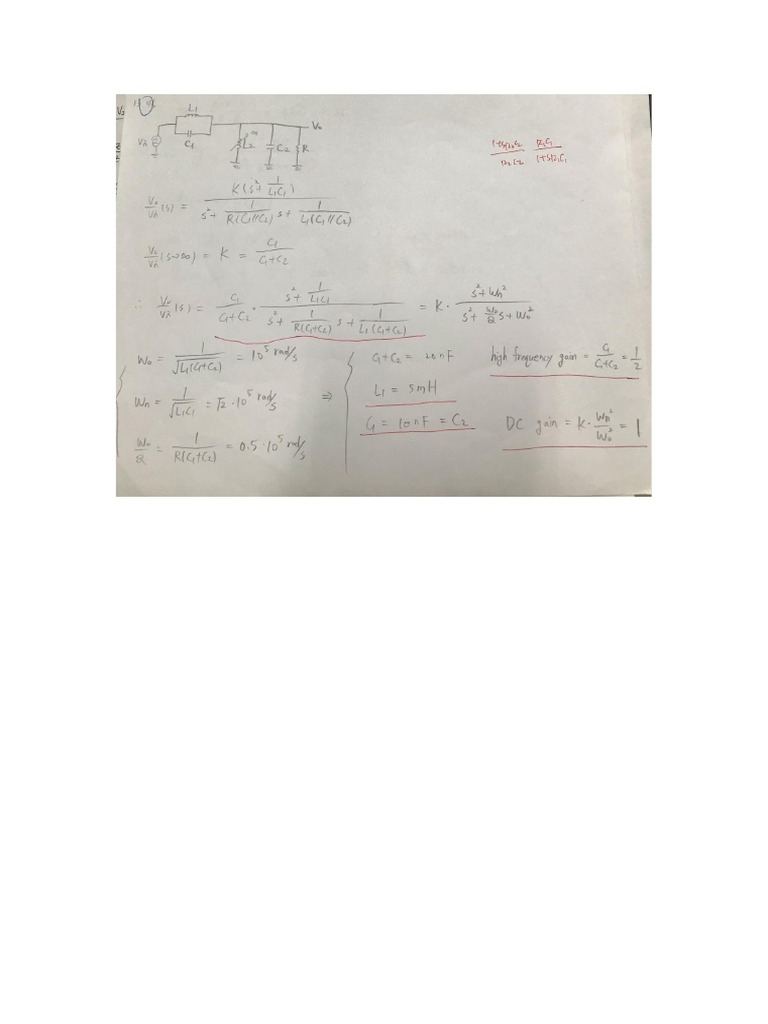 L1
Vo
C1
L2 ∞
C2
R
1+SR2C2 / R2C2 R1C1 / 1+SR1C1
Vo/Vi (s) = K(s²+ 1/L1C1) / s²+ 1/R(C1//C2) s+ 1/L1(C1//C2)
Vo/Vi (s→∞) = K = C1/C1+C2
∴ Vo/Vi (s) = C1/C1+C2 · s²+ 1/L1C1 / s²+ 1/R(C1+C2) s+ 1/L1(C1+C2) = K· s²+Wn² / s²+ Wo/Q s+Wo²
Wo = 1/√L1(C1+C2) = 10⁵ rad/s
Wn = 1/√L1C1 = √2·10⁵ rad/s
Wo/Q = 1/R(C1+C2) = 0.5·10⁵ rad/s
⇒
C1+C2 = 20nF
L1 = 5mH
C1 = 10nF = C2
high frequency gain = C1/C1+C2 = 1/2
DC gain = K· Wn²/Wo² = 1